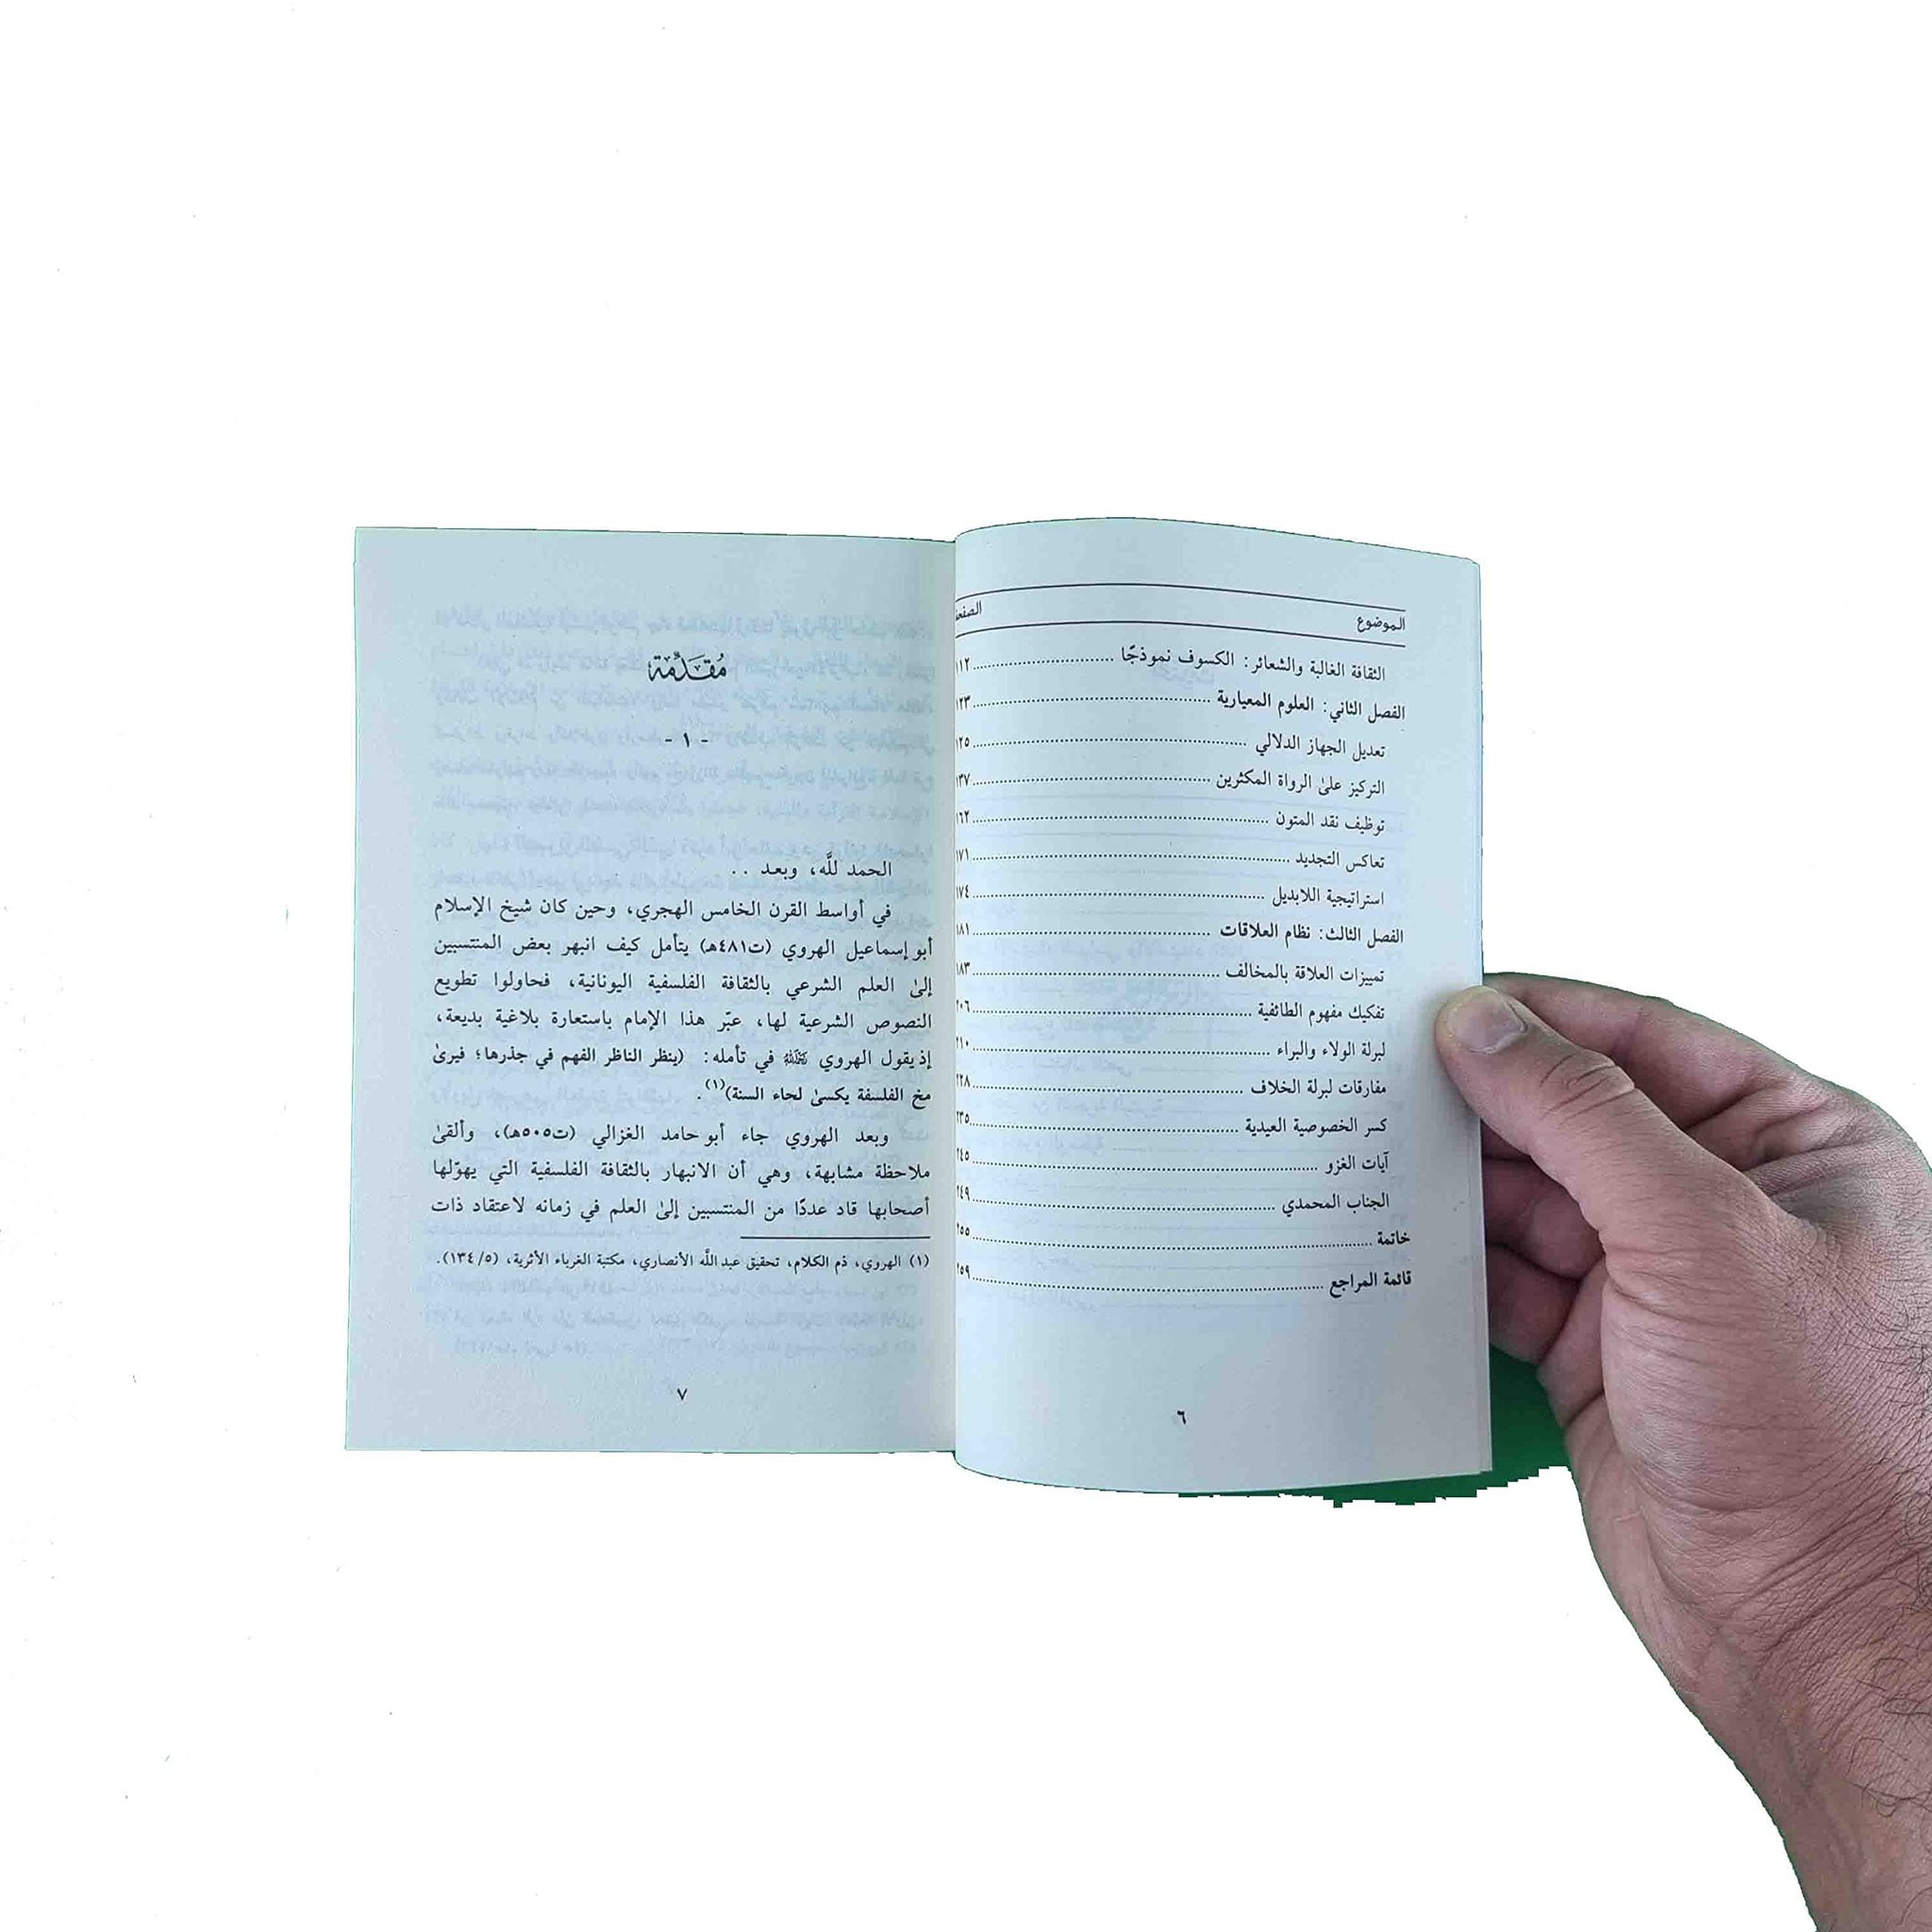 الموضوع الصفحة
الثقافة الغالبة والشعائر: الكسوف نموذجًا ١١٢
الفصل الثاني: العلوم المعيارية ١٢٣
تعديل الجهاز الدلالي ١٢٥
التركيز علىٰ الرواة المكثرين ١٣٧
توظيف نقد المتون ١٦٢
تعاكس التجديد ١٧١
استراتيجية اللابديل ١٧٤
الفصل الثالث: نظام العلاقات ١٨١
تمييزات العلاقة بالمخالف ١٨٣
تفكيك مفهوم الطائفية ٢٠٦
لبرلة الولاء والبراء ٢١٠
مفارقات لبرلة الخلاف ٢٢٨
كسر الخصوصية العيدية ٢٣٥
آيات الغزو ٢٤٥
الجناب المحمدي ٢٤٩
خاتمة ٢٥٥
قائمة المراجع ٢٥٩
٦
مُقَدِّمَة
- ١ -
الحمد للَّه، وبعد ..
في أواسط القرن الخامس الهجري، وحين كان شيخ الإسلام
أبو إسماعيل الهروي (ت٤٨١هـ) يتأمل كيف انبهر بعض المنتسبين
إلىٰ العلم الشرعي بالثقافة الفلسفية اليونانية، فحاولوا تطويع
النصوص الشرعية لها، عبّر هذا الإمام باستعارة بلاغية بديعة،
إذ يقول الهروي رَحِمَهُ اللَّهُ في تأمله: (ينظر الناظر الفهم في جذرها؛ فيرىٰ
مخ الفلسفة يكسىٰ لحاء السنة)(١).
وبعد الهروي جاء أبو حامد الغزالي (ت٥٠٥هـ)، وألقىٰ
ملاحظة مشابهة، وهي أن الانبهار بالثقافة الفلسفية التي يهوّلها
أصحابها قاد عددًا من المنتسبين إلىٰ العلم في زمانه لاعتقاد ذات
(١) الهروي، ذم الكلام، تحقيق عبد اللَّه الأنصاري، مكتبة الغرباء الأثرية، (٥/ ١٣٤).
٧